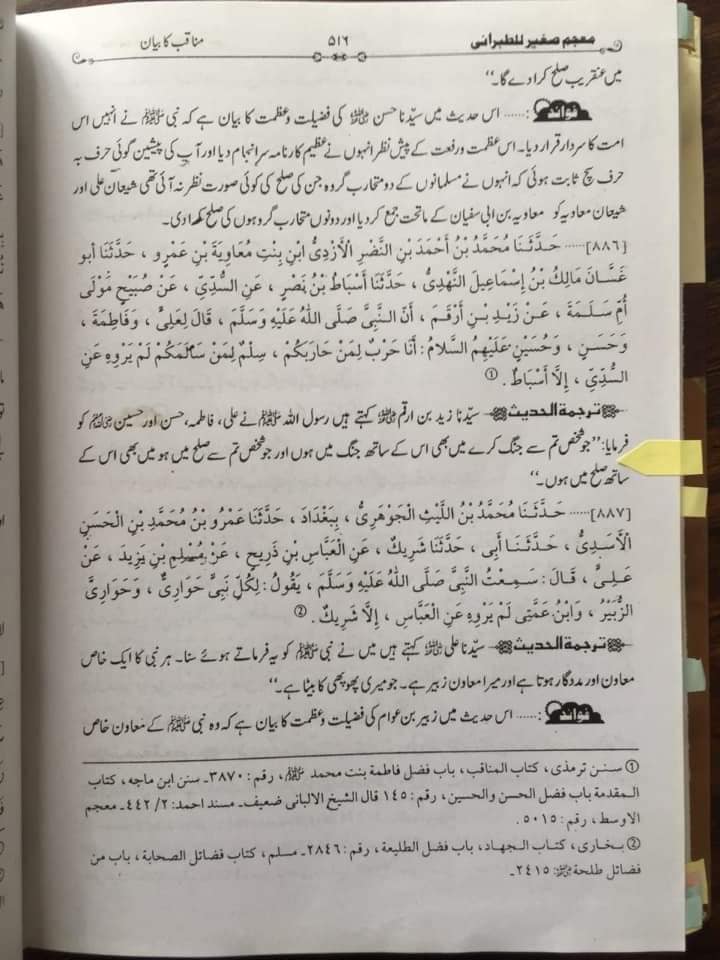 معجم صغیر للطبرانی ۵۱۶ مناقب کا بیان
میں عنقریب صلح کرا دے گا۔‘‘
فوائد:...... اس حدیث میں سیّدنا حسن رضی اللہ عنہ کی فضیلت و عظمت کا بیان ہے کہ نبی ﷺ نے انہیں اس
امت کا سردار قرار دیا۔ اس عظمت ورفعت کے پیش نظر انہوں نے عظیم کارنامہ سر انجام دیا اور آپ کی پیشین گوئی حرف بہ
حرف سچ ثابت ہوئی کہ انہوں نے مسلمانوں کے دو متحارب گروہ جن کی صلح کی کوئی صورت نظر نہ آئی تھی شیعان علی اور
شیعان معاویہ کو معاویہ بن ابی سفیان کے ماتحت جمع کر دیا اور دونوں متحارب گروہوں کی صلح
[٨٨٦]...... حَدَّثَنَا مُحَمَّدُ بْنُ أَحْمَدَ بْنِ النَّضْرِ الْأَزْدِيُّ ابْنِ بِنْتِ مُعَاوِيَةَ بْنِ عَمْرٍو ، حَدَّثَنَا أَبُو
غَسَّانَ مَالِكُ بْنُ إِسْمَاعِيلَ النَّهْدِيُّ ، حَدَّثَنَا أَسْبَاطُ بْنُ نَصْرٍ ، عَنِ السُّدِّيِّ ، عَنْ صُبَيْحٍ مَوْلَى
أُمِّ سَلَمَةَ ، عَنْ زَيْدِ بْنِ أَرْقَمَ ، أَنَّ النَّبِيَّ صَلَّى اللهُ عَلَيْهِ وَسَلَّمَ ، قَالَ لِعَلِيٍّ ، وَفَاطِمَةَ ،
وَحَسَنٍ ، وَحُسَيْنٍ عَلَيْهِمُ السَّلَامُ : أَنَا حَرْبٌ لِمَنْ حَارَبَكُمْ ، سِلْمٌ لِمَنْ سَالَمَكُمْ لَمْ يَرْوِهِ عَنِ
السُّدِّيِّ ، إِلَّا أَسْبَاطٌ . ①
ترجمة الحديث سیّدنا زید بن ارقم کہتے ہیں رسول اللہ ﷺ نے علی، فاطمہ، حسن اور حسین رضی اللہ عنہم کو
فرمایا: ’’جو شخص تم سے جنگ کرے میں بھی اس کے ساتھ جنگ میں ہوں اور جو شخص تم سے صلح میں ہو میں بھی اس کے
ساتھ صلح میں ہوں۔‘‘
[٨٨٧]...... حَدَّثَنَا مُحَمَّدُ بْنُ اللَّيْثِ الْجَوْهَرِيُّ ، بِبَغْدَادَ ، حَدَّثَنَا عَمْرُو بْنُ مُحَمَّدِ بْنِ الْحَسَنِ
الْأَسَدِيُّ ، حَدَّثَنَا أَبِي ، حَدَّثَنَا شَرِيكٌ ، عَنِ الْعَبَّاسِ بْنِ ذَرِيحٍ ، عَنْ مُسْلِمِ بْنِ يَزِيدَ ، عَنْ
عَلِيٍّ ، قَالَ : سَمِعْتُ النَّبِيَّ صَلَّى اللهُ عَلَيْهِ وَسَلَّمَ ، يَقُولُ : لِكُلِّ نَبِيٍّ حَوَارِيٌّ ، وَحَوَارِيَّ
الزُّبَيْرُ ، وَابْنُ عَمَّتِي لَمْ يَرْوِهِ عَنِ الْعَبَّاسِ ، إِلَّا شَرِيكٌ . ②
ترجمة الحديث سیّدنا علی رضی اللہ عنہ کہتے ہیں میں نے نبی ﷺ کو یہ فرماتے ہوئے سنا۔ ہر نبی کا ایک خاص
معاون اور مددگار ہوتا ہے اور میرا معاون زبیر ہے۔ جو میری پھوپھی کا بیٹا ہے۔‘‘
فوائد:...... اس حدیث میں زبیر بن عوام کی فضیلت و عظمت کا بیان ہے کہ وہ نبی ﷺ کے معاون خاص
① سنن ترمذی، کتاب المناقب، باب فضل فاطمة بنت محمد ﷺ، رقم : ٣٨٧٠۔ سنن ابن ماجه، کتاب
المقدمة باب فضل الحسن والحسین، رقم : ١٤٥ قال الشیخ الالبانی ضعیف۔ مسند احمد: ٢/ ٤٤٢۔ معجم
الاوسط، رقم : ٥٠١٥.
② بخاری، کتاب الجهاد، باب فضل الطلیعة، رقم: ٢٨٤٦۔ مسلم، کتاب فضائل الصحابة، باب من
فضائل طلحة رضی اللہ عنہ: ٢٤١٥۔